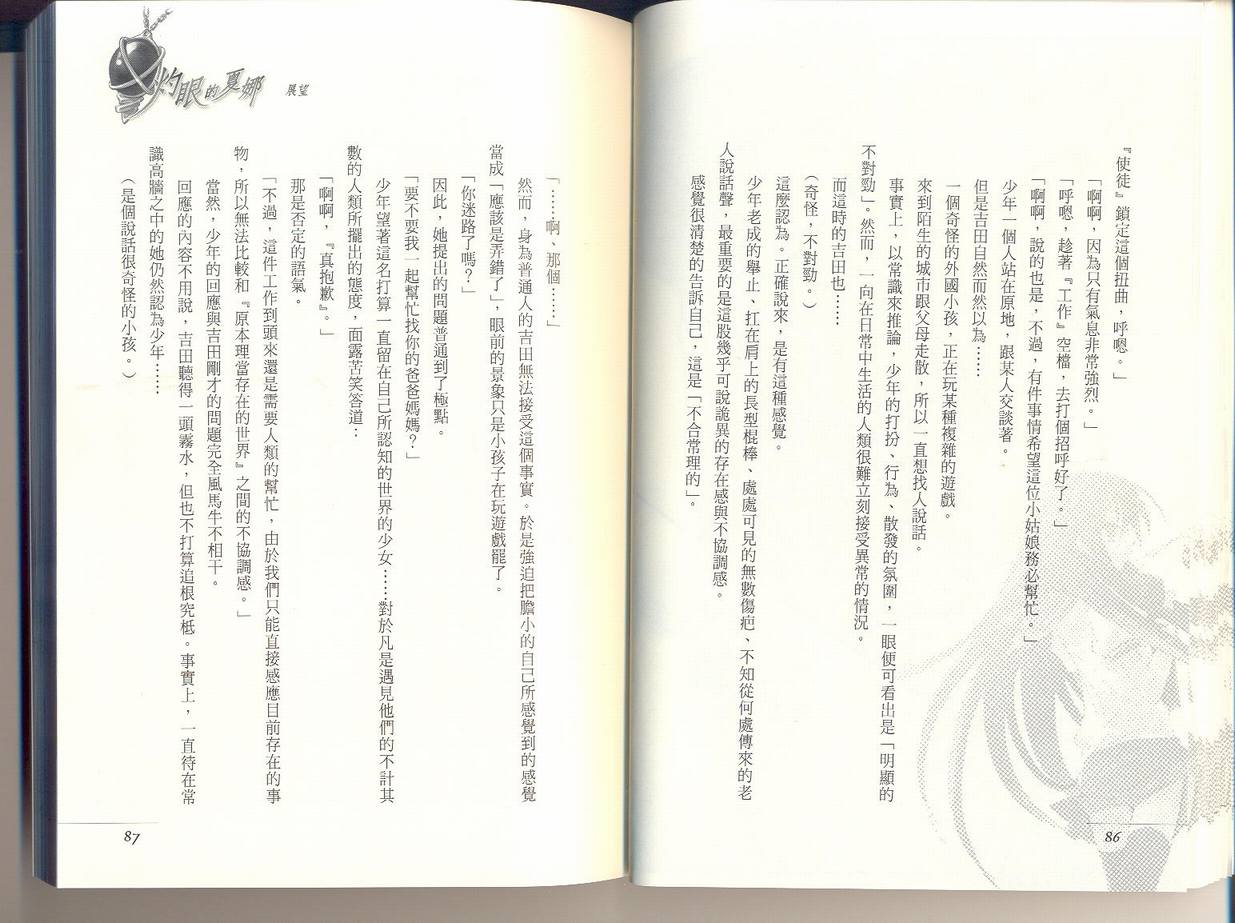 『使徒』鎖定這個扭曲，呼嗯。」
「啊啊，因為只有氣息非常強烈。」
「呼嗯，趁著『工作』空檔，去打個招呼好了。」
「啊啊，說的也是，不過，有件事情希望這位小姑娘務必幫忙。」
少年一個人站在原地，跟某人交談著。
但是吉田自然而然以為……
一個奇怪的外國小孩，正在玩某種複雜的遊戲。
來到陌生的城市跟父母走散，所以一直想找人說話。
事實上，以常識來推論，少年的打扮、行為、散發的氛圍，一眼便可看出是「明顯的
不對勁」。然而，一向在日常中生活的人類很難立刻接受異常的情況。
而這時的吉田也……
（奇怪，不對勁。）
這麼認為。正確說來，是有這種感覺。
少年老成的舉止、扛在肩上的長型棍棒、處處可見的無數傷疤、不知從何處傳來的老
人說話聲，最重要的是這股幾乎可說詭異的存在感與不協調感。
感覺很清楚的告訴自己，這是「不合常理的」。
86
灼眼的夏娜 展望
「……啊、那個……」
然而，身為普通人的吉田無法接受這個事實。於是強迫把膽小的自己所感覺到的感覺
當成「應該是弄錯了」，眼前的景象只是小孩子在玩遊戲罷了。
「你迷路了嗎？」
因此，她提出的問題普通到了極點。
「要不要我一起幫忙找你的爸爸媽媽？」
少年望著這名打算一直留在自己所認知的世界的少女……對於凡是遇見他們的不計其
數的人類所擺出的態度，面露苦笑答道：
「啊啊，『真抱歉』。」
那是否定的語氣。
「不過，這件工作到頭來還是需要人類的幫忙，由於我們只能直接感應目前存在的事
物，所以無法比較和『原本理當存在的世界』之間的不協調感。」
當然，少年的回應與吉田剛才的問題完全風馬牛不相干。
回應的內容不用說，吉田聽得一頭霧水，但也不打算追根究柢。事實上，一直待在常
識高牆之中的她仍然認為少年……
（是個說話很奇怪的小孩。）
87